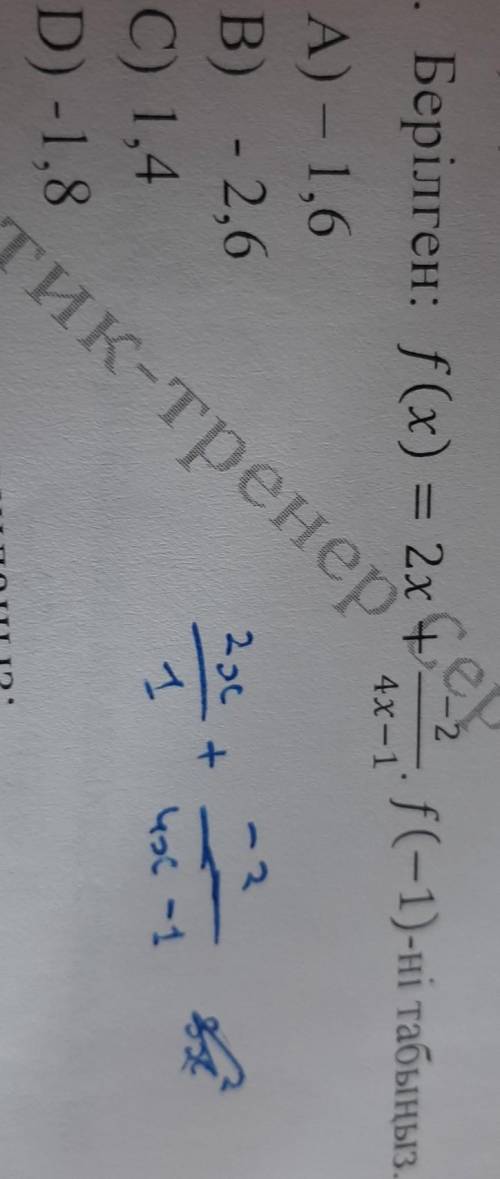 . Берілген: f(x) = 2x + −2/4x−1. f(−1)-ні табыңыз.
A) – 1,6
B) - 2,6
C) 1,4
D) -1,8
тик-тренер Сер
2x/1 + -2/4x -1